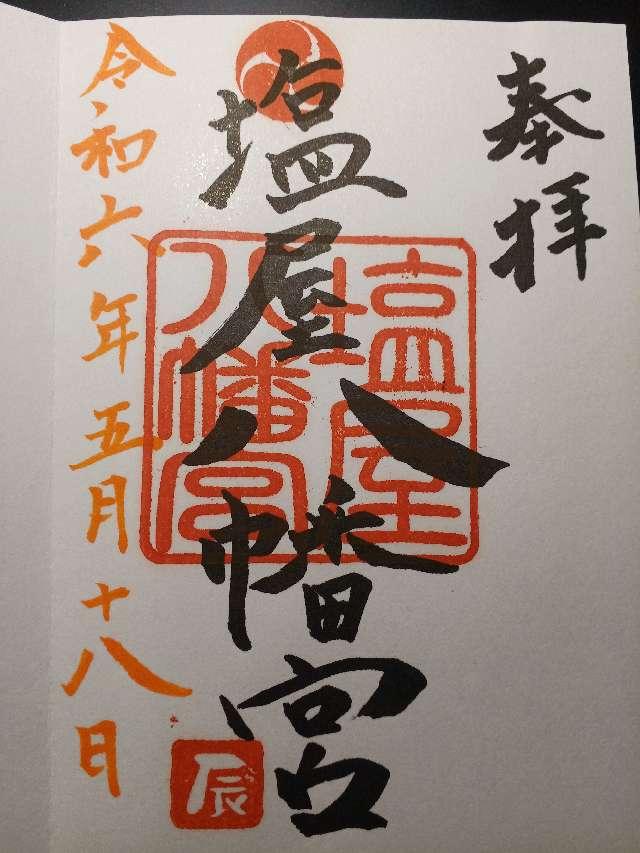 奉拝
塩屋八幡宮
塩屋
八幡宮
令和六年五月十八日
辰